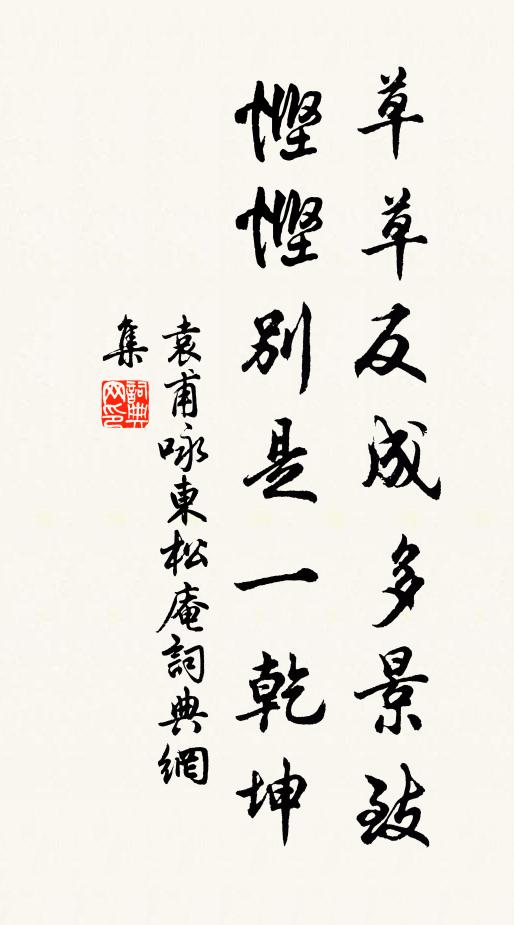 草草反成多景致
慳慳別是一乾坤
袁甫咏東松庵詞典網
集
詞典
网印